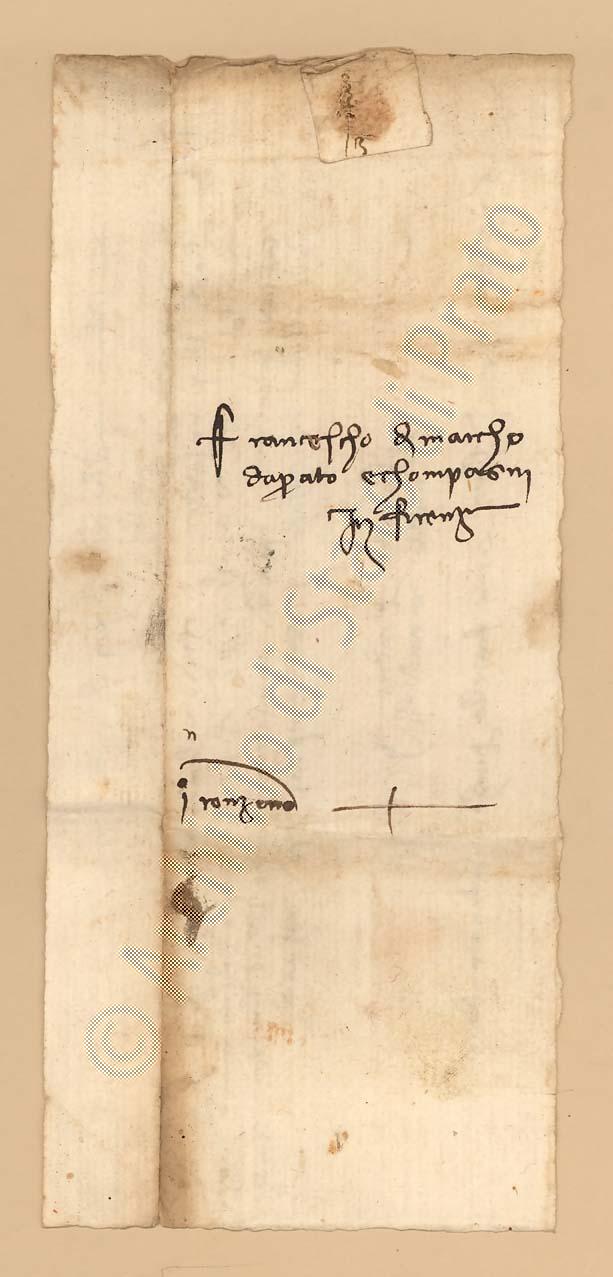 Francescho di marcho
da prato e chompagni
In firenze
© Archivio di Stato di Prato